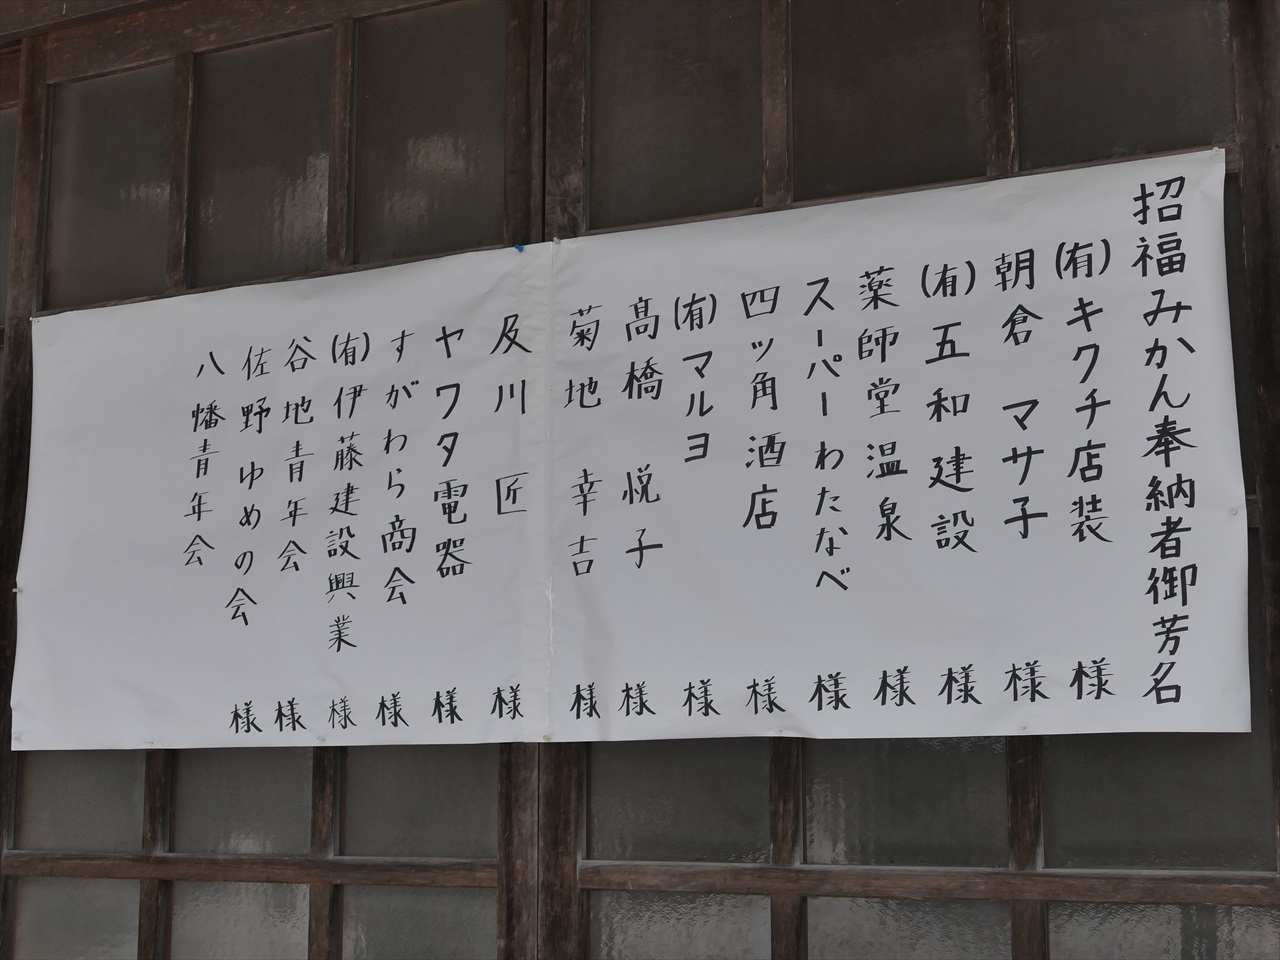 招福みかん奉納者御芳名
(有)キクチ店装 様
朝倉 マサ子 様
(有)五和建設 様
薬師堂温泉 様
スーパーわたなべ 様
四ッ角酒店 様
(有)マルヨ 様
髙橋 悦子 様
菊地 幸吉 様
及川 匠 様
ヤワタ電器 様
すがわら商会 様
(有)伊藤建設興業 様
谷地青年会 様
佐野ゆめの会 様
八幡青年会